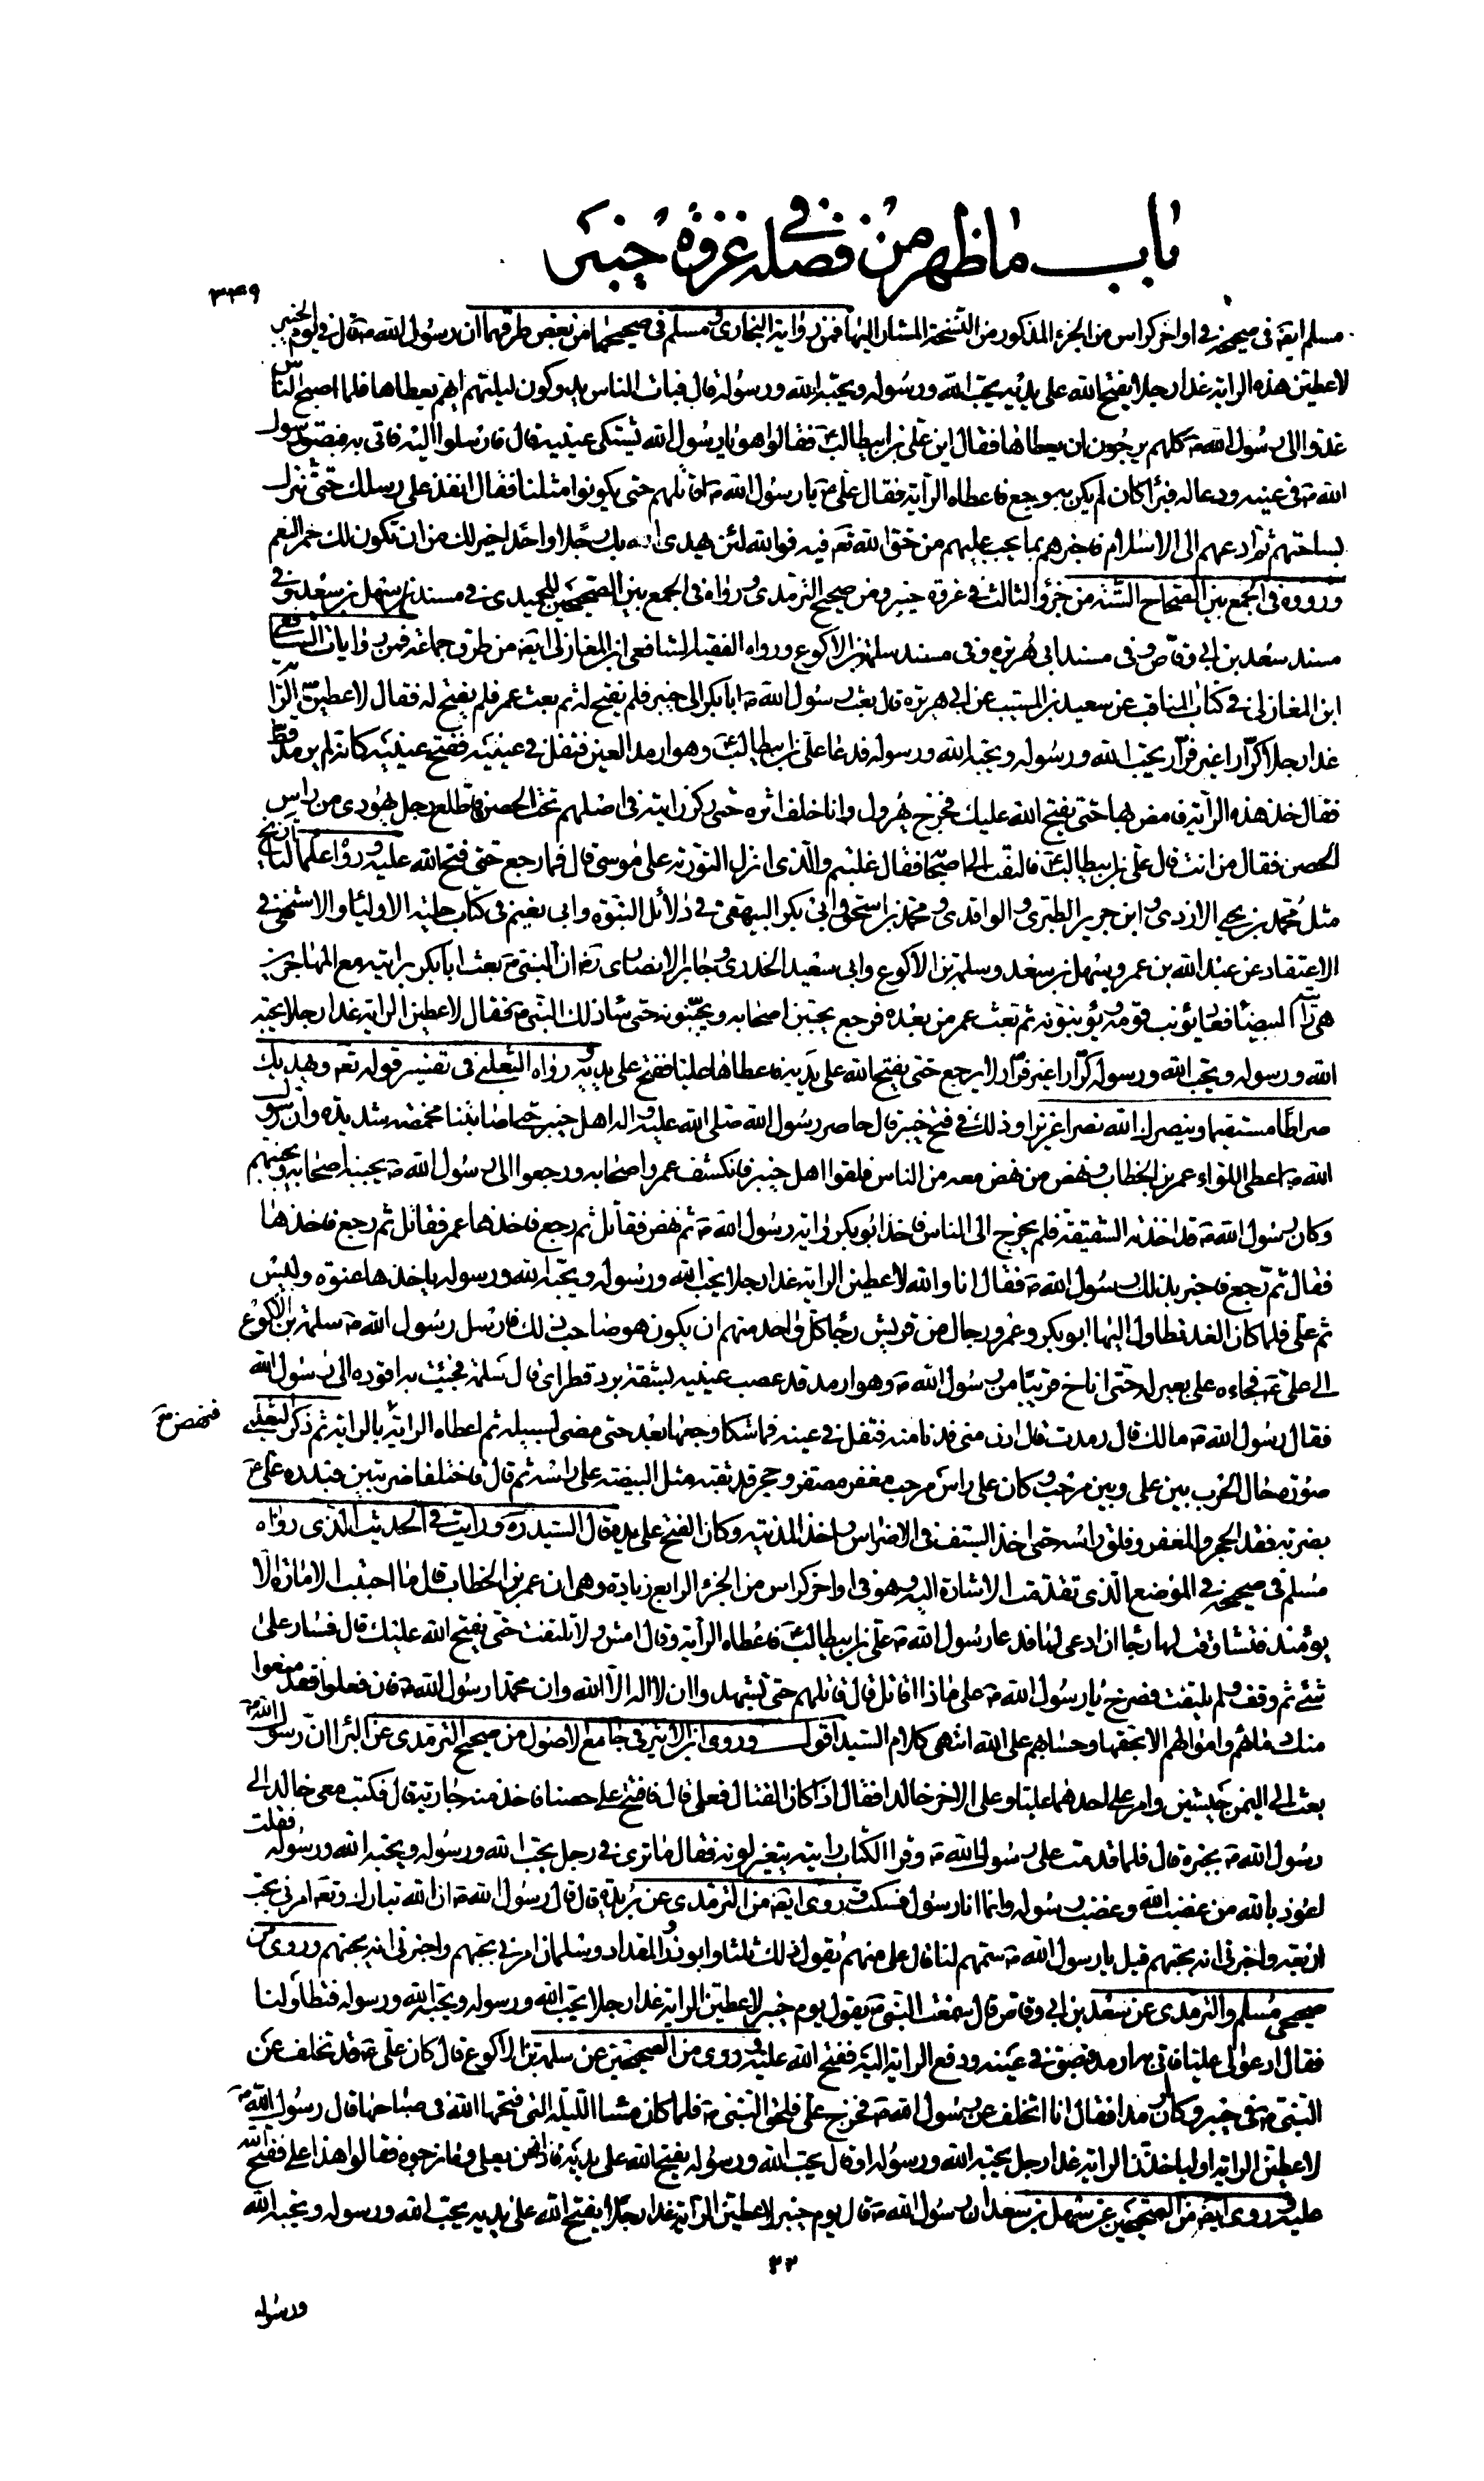 باب ما ظهر من فضله في غزوة خيبر
٣٤٩
مسلم ايضا في صحيحه في اواخر كراس من الجزء المذكور من النسخة المشار اليها فمن رواية البخاري ومسلم في صحيحهما من بعض طرقهما ان رسول الله ص قال في يوم الخيبر
لاعطين هذه الراية غدا رجلا يفتح الله على يديه يحب الله ورسوله ويحبه الله ورسوله قال فبات الناس يدوكون ليلتهم ايهم يعطاها فلما اصبح الناس
غدوا الى رسول الله ص كلهم يرجون ان يعطاها فقال اين علي بن ابيطالب ع فقالوا هو يا رسول الله يشتكي عينيه قال فارسلوا اليه فاتي به فبصق رسول
الله ص في عينيه ودعا له فبرأ كان لم يكن به وجع فاعطاه الراية فقال علي ع يا رسول الله ص اقاتلهم حتى يكونوا مثلنا فقال انفذ على رسلك حتى تنزل
بساحتهم ثم ادعهم الى الاسلام فاخبرهم بما يجب عليهم من حق الله تع فيه فوالله لئن يهدي الله بك رجلا واحدا خير لك من ان تكون لك حمر النعم
ورووه في الجمع بين الصحاح الستة من جزؤ الثالث في غزوة خيبر ومن صحيح الترمدي ورواه في الجمع بين الصحيحين للحميدي في مسند سهل بن سعد وفي
مسند سعد بن ابي وقاص وفي مسند ابي هريرة وفي مسند سلمة بن الاكوع ورواه الفقيه الشافعي ابن المغازلي ايضا من طرق جماعة فمن روايات الشافعي
ابن المغازلي في كتاب المناقب عن سعيد بن المسيب عن ابي هريرة قال بعث رسول الله ص ابا بكر الى خيبر فلم يفتح له ثم بعث عمر فلم يفتح له فقال لاعطين الراية
غدا رجلا كرارا غير فرار يحب الله ورسوله ويحبه الله ورسوله فدعا علي بن ابيطالب ع وهو ارمد العين فتفل في عينيه ففتح عينيه كانه لم يرمد قط
فقال خذ هذه الراية فامض بها حتى يفتح الله عليك فخرج يهرول وانا خلف اثره حتى ركز رايته في اضلهم تحت الحصن فاطلع رجل يهودي من راس
الحصن فقال من انت قال علي بن ابيطالب ع فالتفت الى اصحابه فقال غلبتم والذي انزل التورية على موسى قال فما رجع حتى فتح الله عليه ورواه علماء التاريخ
مثل محمد بن يحيى الازدي وابن جرير الطبري والواقدي ومحمد بن اسحق وابي بكر البيهقي في دلائل النبوة وابي نعيم في كتاب حلية الاولياء والاشنهي في
الاعتقاد عن عبد الله بن عمر وسهل بن سعد وسلمة بن الاكوع وابي سعيد الخدري وجابر الانصاري ره ان النبي ص بعث ابا بكر برايته مع المهاجرين
هي راية البيضاء فعاد يؤنب قومه ويؤنبونه ثم بعث عمر من بعده فرجع يجبن اصحابه ويجبنونه حتى ساء ذلك النبي ص فقال لاعطين الراية غدا رجلا يحبه
الله ورسوله ويحب الله ورسوله كرارا غير فرار لا يرجع حتى يفتح الله على يديه فاعطاها عليا ففتح على يديه ورواه الثعلبي في تفسير قوله تع ويهديك
صراطا مستقيما وينصرك الله نصرا عزيزا وذلك في فتح خيبر قال حاصر رسول الله صلى الله عليه واله اهل خيبر حتى اصابتنا مخمصة شديدة وان رسول
الله ص اعطى اللواء عمر بن الخطاب ونهض من نهض معه من الناس فلقوا اهل خيبر فانكشف عمر واصحابه ورجعوا الى رسول الله ص يجبنه اصحابه ويجبنهم
وكان رسول الله ص قد اخذته الشقيقة فلم يخرج الى الناس فاخذ ابو بكر راية رسول الله ص ثم نهض فقاتل ثم رجع فاخذها عمر فقاتل ثم رجع فاخذها
فقال ثم رجع فاخبر بذلك رسول الله ص فقال انا والله لاعطين الراية غدا رجلا يحب الله ورسوله ويحبه الله ورسوله ياخذها عنوة وليس
ثم علي فلما كان الغد تطاول اليها ابو بكر وعمر ورجال من قريش رجا كل واحد منهم ان يكون هو صاحب ذلك فارسل رسول الله ص سلمة بن الاكوع
الى علي ع فجاءه على بعير له حتى اناخ قريبا من رسول الله ص وهو ارمد قد عصب عينيه بشقة برد قطري قال سلمة فجئت به اقوده الى رسول الله
فقال رسول الله ص مالك قال رمدت قال ادن مني فدنا منه فتفل في عينه فما شكا وجعها بعد حتى مضى لسبيله ثم اعطاه الراية بالراية ثم ذكر الثعلبي
فنهض مع
صورة حال الحرب بين علي وبين مرحب وكان على راس مرحب مغفر مصفر وحجر قد ثقبه مثل البيضة على راسه ثم قال فاختلفا ضربتين فبدره علي ع
بضربة فقد الحجر والمغفر وفلق راسه حتى اخذ السيف في الاضراس واخذ المدينة وكان الفتح على يده قال السيد ره ورايت في الحديث الذي رواه
مسلم في صحيحه في الموضع الذي تقدمت الاشارة اليه وهو في اواخر كراس من الجزء الرابع زيادة وهي ان عمر بن الخطاب قال ما احببت الامارة الا
يومئذ فتشاوقت لها رجا ان ادعى لها فدعا رسول الله ص علي بن ابيطالب ع فاعطاه الراية وقال امش ولا تلتفت حتى يفتح الله عليك قال فسار علي
شئ ثم وقف ولم يلتفت فصرخ يا رسول الله ص على ماذا اقاتل قال قاتلهم حتى يشهدوا ان لا اله الا الله وان محمدا رسول الله ص فان فعلوا فقد منعوا
منك دمائهم واموالهم الا بحقها وحسابهم على الله انتهى كلام السيد اقول وروى ابن الاثير في جامع الاصول من صحيح الترمدي عن البرا ان رسول الله ص
بعث الى اليمن جيشين وامر على احدهما عليا وعلى الاخر خالدا فقال اذا كان القتال فعلي قال فافتتح علي حصنا فاخذ منه جارية قال فكتب معي خالد الى
رسول الله ص يخبره قال فلما قدمت على رسول الله ص وقرا الكتاب رايته يتغير لونه فقال ما ترى في رجل يحب الله ورسوله ويحبه الله ورسوله فقلت
اعوذ بالله من غضب الله وغضب رسوله وانما انا رسول فسكت وروى ايضا من الترمدي عن بريدة قال قال رسول الله ص ان الله تبارك وتع امرني بحب
اربعة واخبرني انه يحبهم قيل يا رسول الله ص سمهم لنا قال علي منهم يقول ذلك ثلثا وابو ذر والمقداد وسلمان امرني بحبهم واخبرني انه يحبهم وروى من
صحيحي مسلم والترمدي عن سعد بن ابي وقاص قال سمعت النبي ص يقول يوم خيبر لاعطين الراية غدا رجلا يحب الله ورسوله ويحبه الله ورسوله فتطاولنا
فقال ادعوا لي عليا فاتي به ارمد فبصق في عينه ودفع الراية اليه ففتح الله عليه وروى من الصحيحين عن سلمة بن الاكوع قال كان علي ع قد تخلف عن
النبي ص في خيبر وكان رمدا فقال انا اتخلف عن رسول الله ص فخرج علي فلحق النبي ص فلما كان مساء الليلة التي فتحها الله في صباحها قال رسول الله ص
لاعطين الراية او لياخذن الراية غدا رجل يحبه الله ورسوله او قال يحب الله ورسوله يفتح الله على يديه فاذا نحن بعلي وما نرجوه فقالوا هذا علي ففتح الله
عليه وروى ايضا من الصحيحين عن سهل بن سعد ان رسول الله ص قال يوم خيبر لاعطين الراية غدا رجلا يفتح الله على يديه يحب الله ورسوله ويحبه الله
٢٢
ورسوله